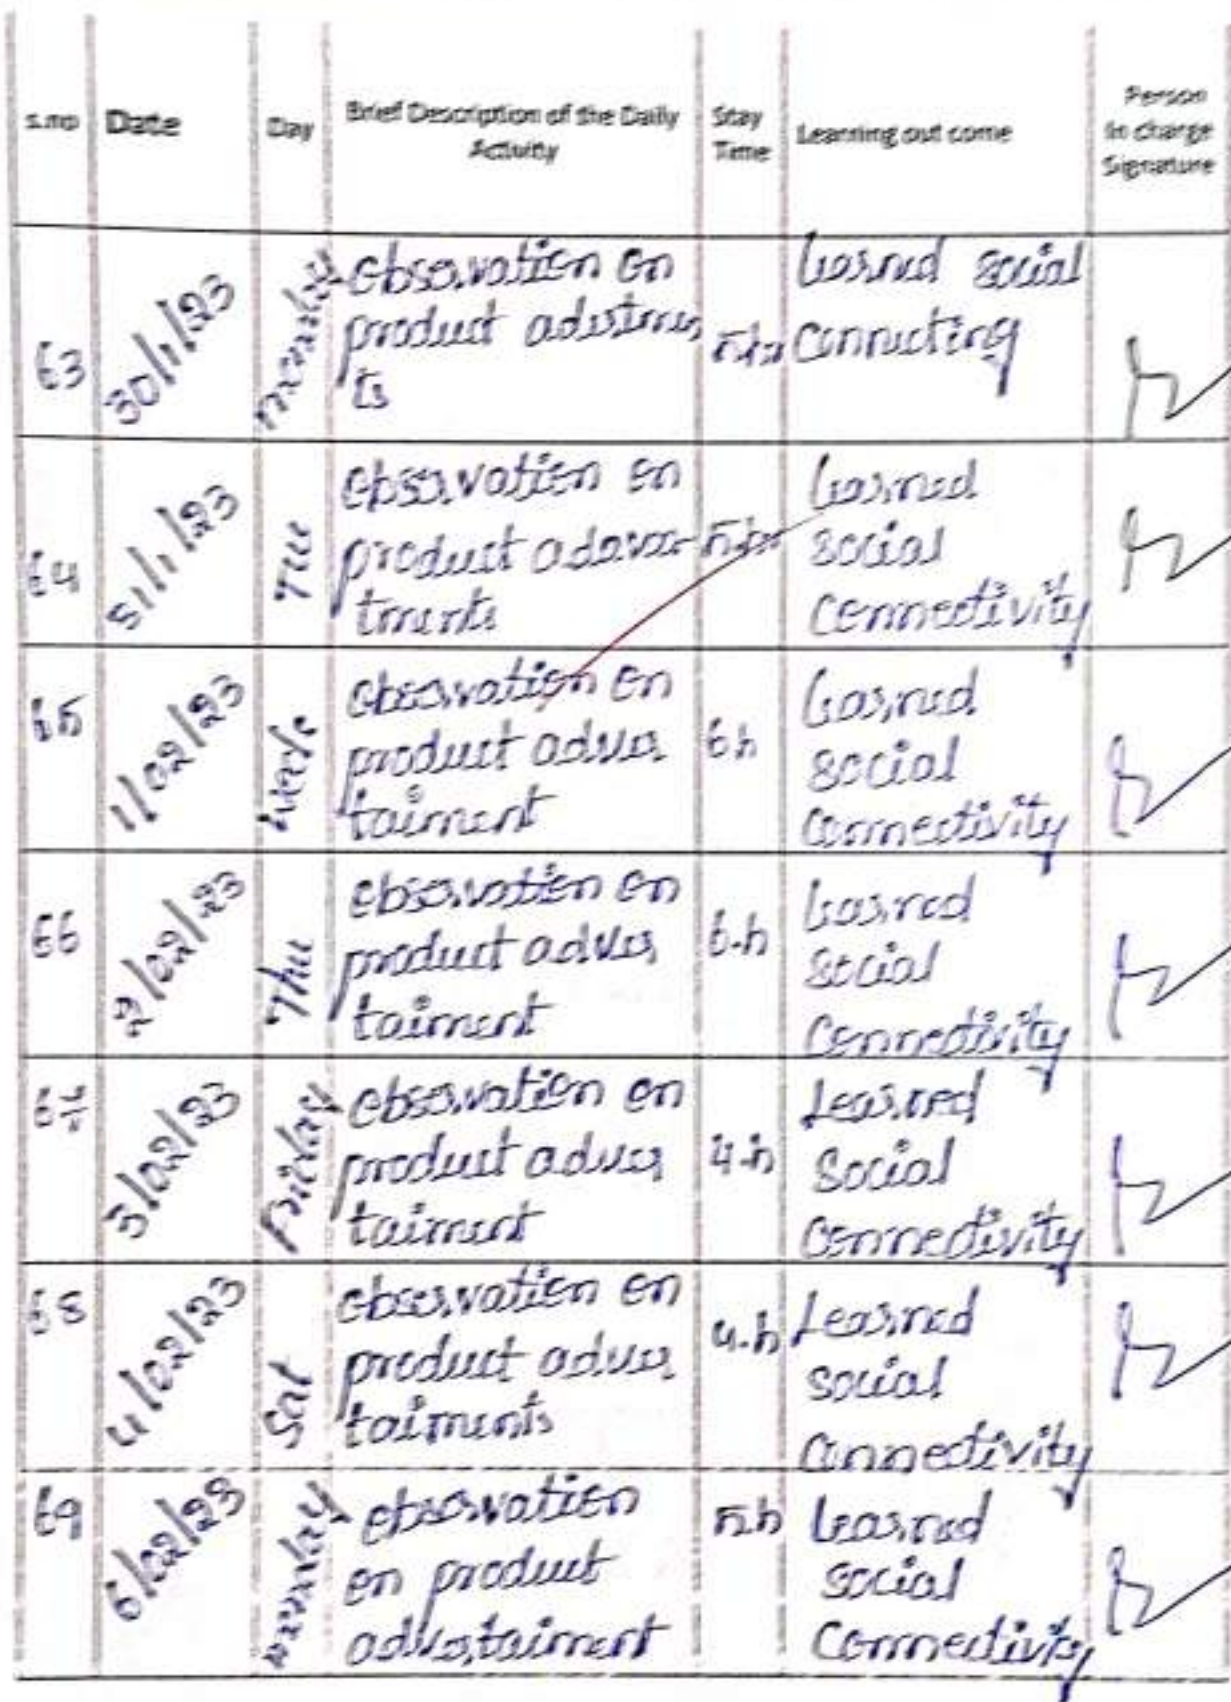 s.no Date Day Brief Description of the Daily Activity Stay Time Learning out come Person In charge Signature
63 30/1/23 Monday observation on product adustmen ts 5.h Learned social Connecting
64 31/1/23 Tue observation on product adavar tments 5.h Learned social Connectivity
65 1/02/23 Wed observation on product adver taiment 6 h Learned social connectivity
66 2/02/23 Thu observation on product adver taiment 6.h Learned social Connectivity
67 3/02/23 Friday observation on product adver taiment 4.h Learned social Connectivity
68 4/02/23 Sat observation on product adver taiments 4.h Learned social Connectivity
69 6/02/23 Monday observation on product advertaiment 5.h Learned social Connectivity